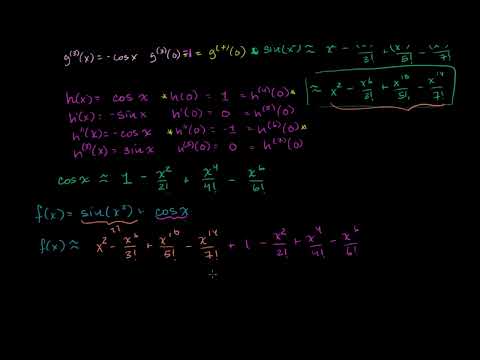 g⁽³⁾(x) = -cos x g⁽³⁾(0) = -1 = g⁽⁷⁾(0) * sin(x²) ≈ x² - /3! + /5! - /7!
≈ x² - x⁶/3! + x¹⁰/5! - x¹⁴/7!
h(x) = cos x *h(0) = 1 = h⁽⁴⁾(0)*
h'(x) = -sin x h'(0) = 0 = h⁽⁵⁾(0)
h''(x) = -cos x *h''(0) = -1 = h⁽⁶⁾(0)*
h⁽³⁾(x) = sin x h⁽³⁾(0) = 0 = h⁽⁷⁾(0)
cos x ≈ 1 - x²/2! + x⁴/4! - x⁶/6!
f(x) = sin(x²) + cos x
f(x) ≈ x² - x⁶/3! + x¹⁰/5! - x¹⁴/7! + 1 - x²/2! + x⁴/4! - x⁶/6!